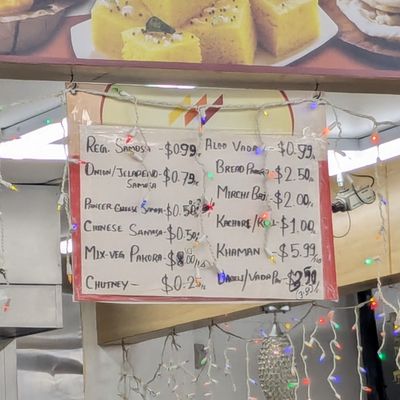 Reg. Samosa - $0.99
Onion/Jalapeno Samosa - $0.79
Paneer Cheese Samosa - $0.50
Chinese Samosa - $0.50
Mix-veg Pakora - $8
Chutney - $0.2
Aloo Vada - $0.59
Bread - $2.50
Mirchi - $2.00
Kachori/ - $1.00
Khaman - $5.99
Dabeli/Vada Pav -